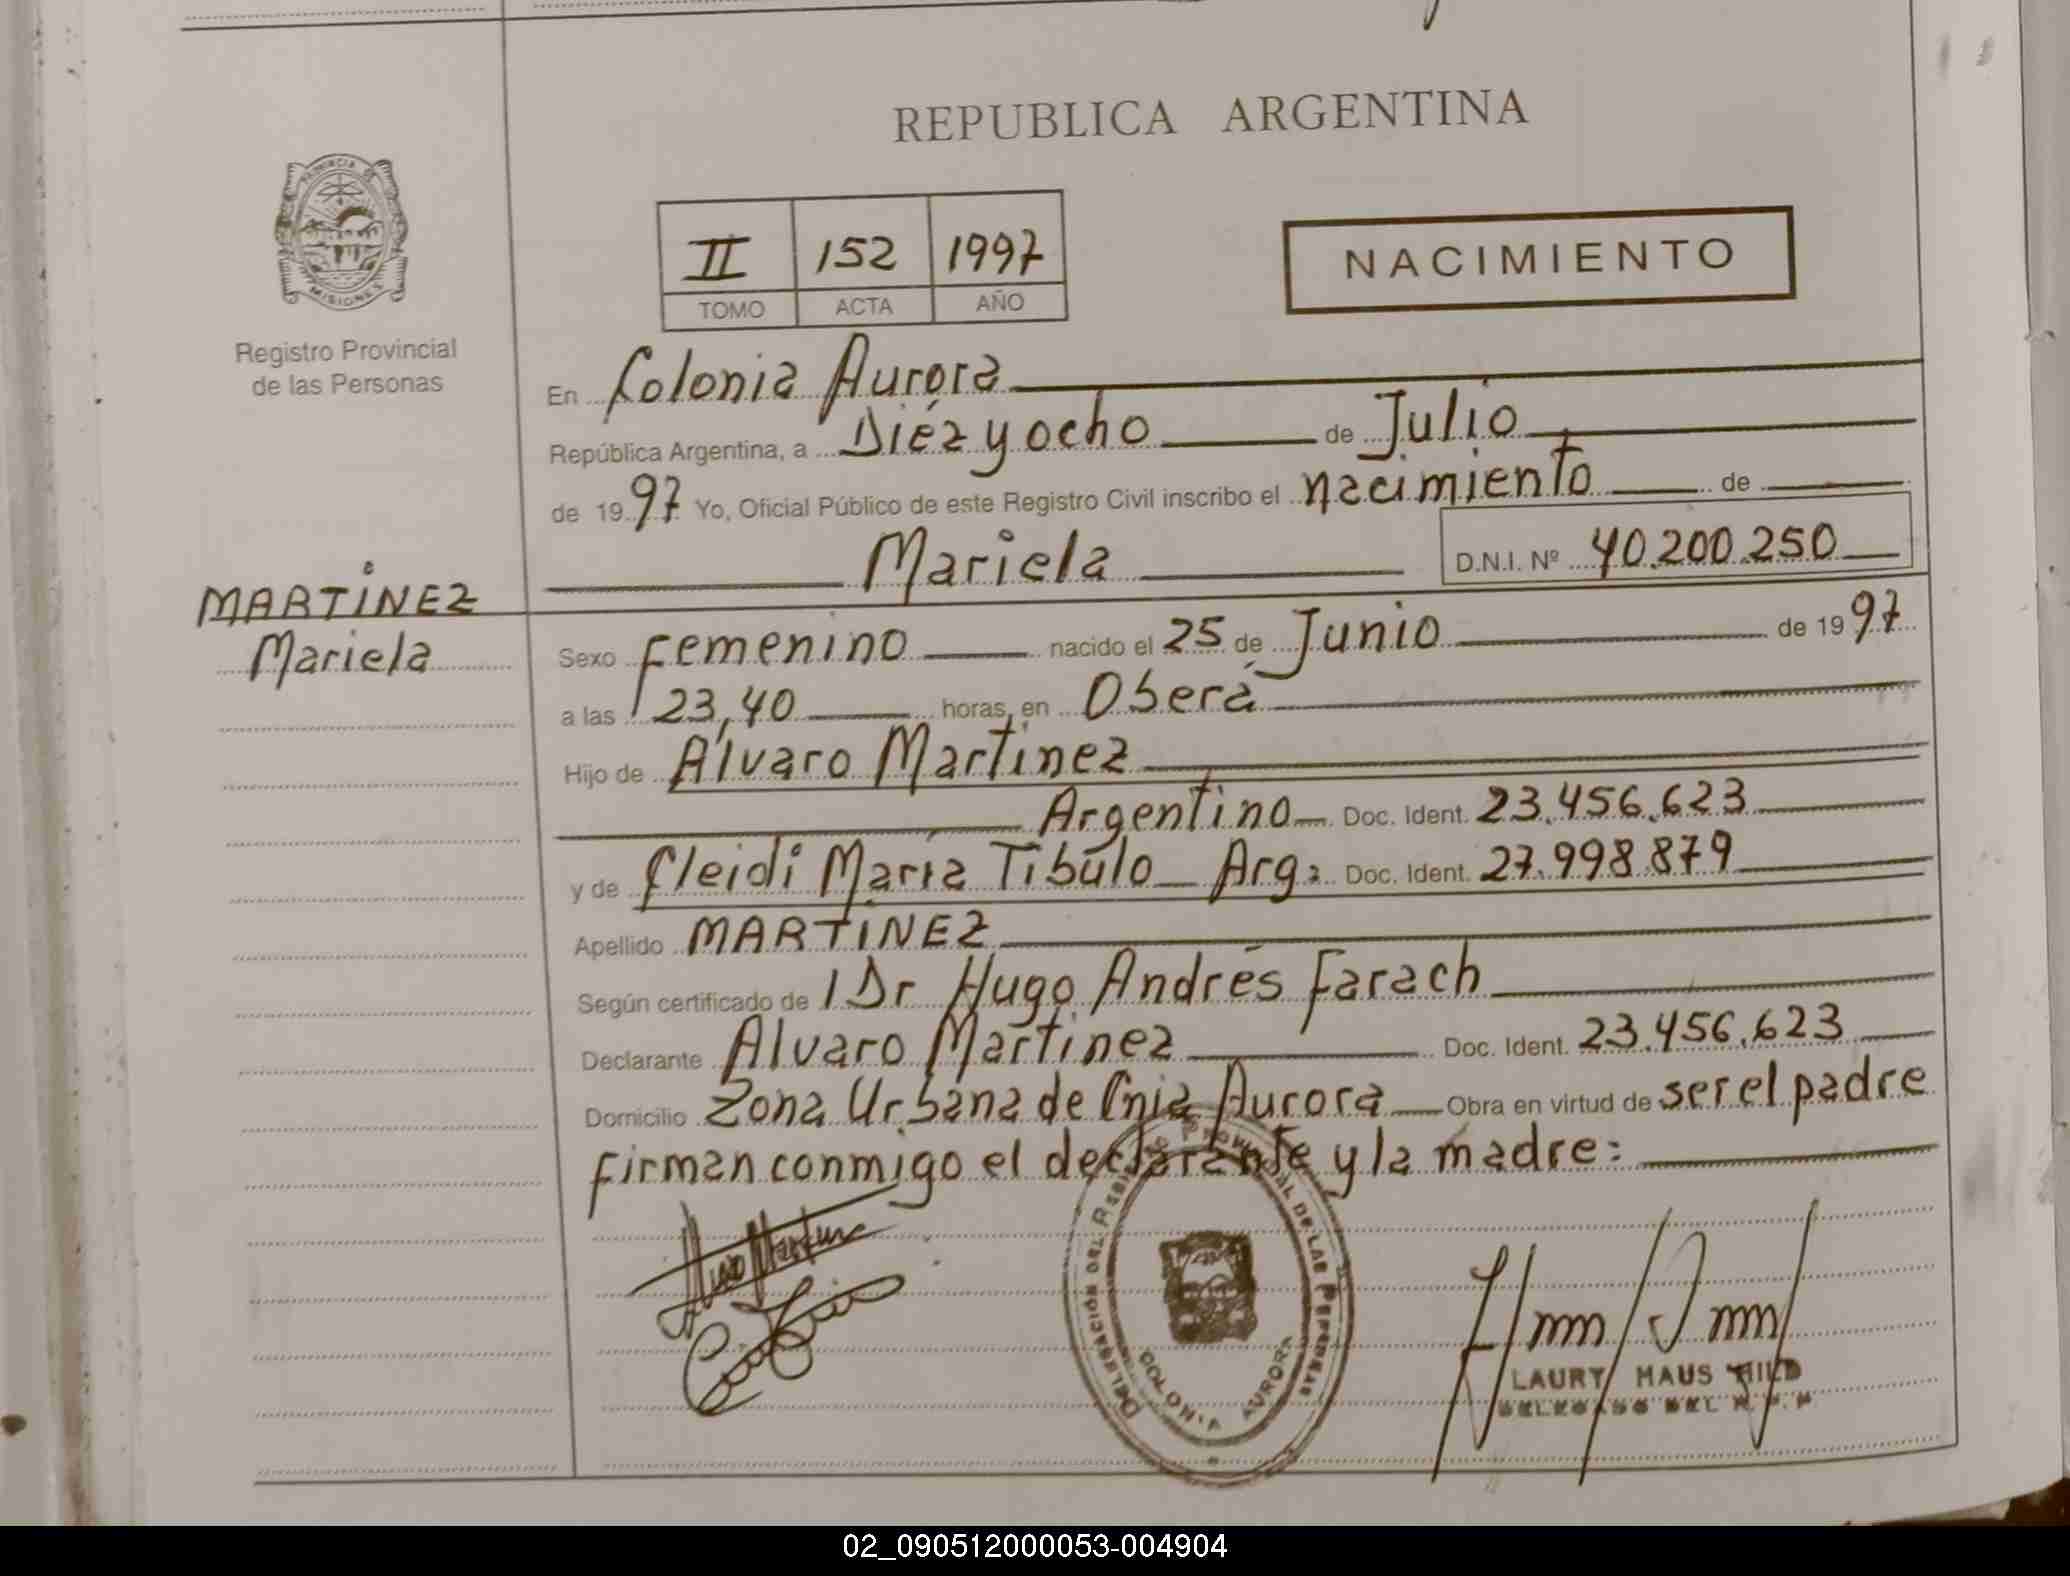 REPUBLICA ARGENTINA
PROVINCIA DE
MISIONES
Registro Provincial
de las Personas
II 152 1997
TOMO ACTA AÑO
NACIMIENTO
En Colonia Aurora
República Argentina, a Diéz y ocho de Julio
de 1997 Yo, Oficial Público de este Registro Civil inscribo el nacimiento de
Mariela D.N.I. Nº 40.200.250
MARTÍNEZ
Mariela
Sexo Femenino nacido el 25 de Junio de 1997
a las 23,40 horas, en Oberá
Hijo de Alvaro Martínez
Argentino Doc. Ident. 23.456.623
y de Cleidi María Tibulo Arg: Doc. Ident. 27.998.879
Apellido MARTÍNEZ
Según certificado de 1 Dr Hugo Andrés Farach
Declarante Alvaro Martínez Doc. Ident. 23.456.623
Domicilio Zona Urbana de Cnia Aurora Obra en virtud de ser el padre
firman conmigo el declarante y la madre:
DELEGACIÓN DEL REGISTRO PROVINCIAL DE LAS PERSONAS
COLONIA AURORA
LAURY HAUS HILD
DELEGADO DEL R.P.P.
02_090512000053-004904